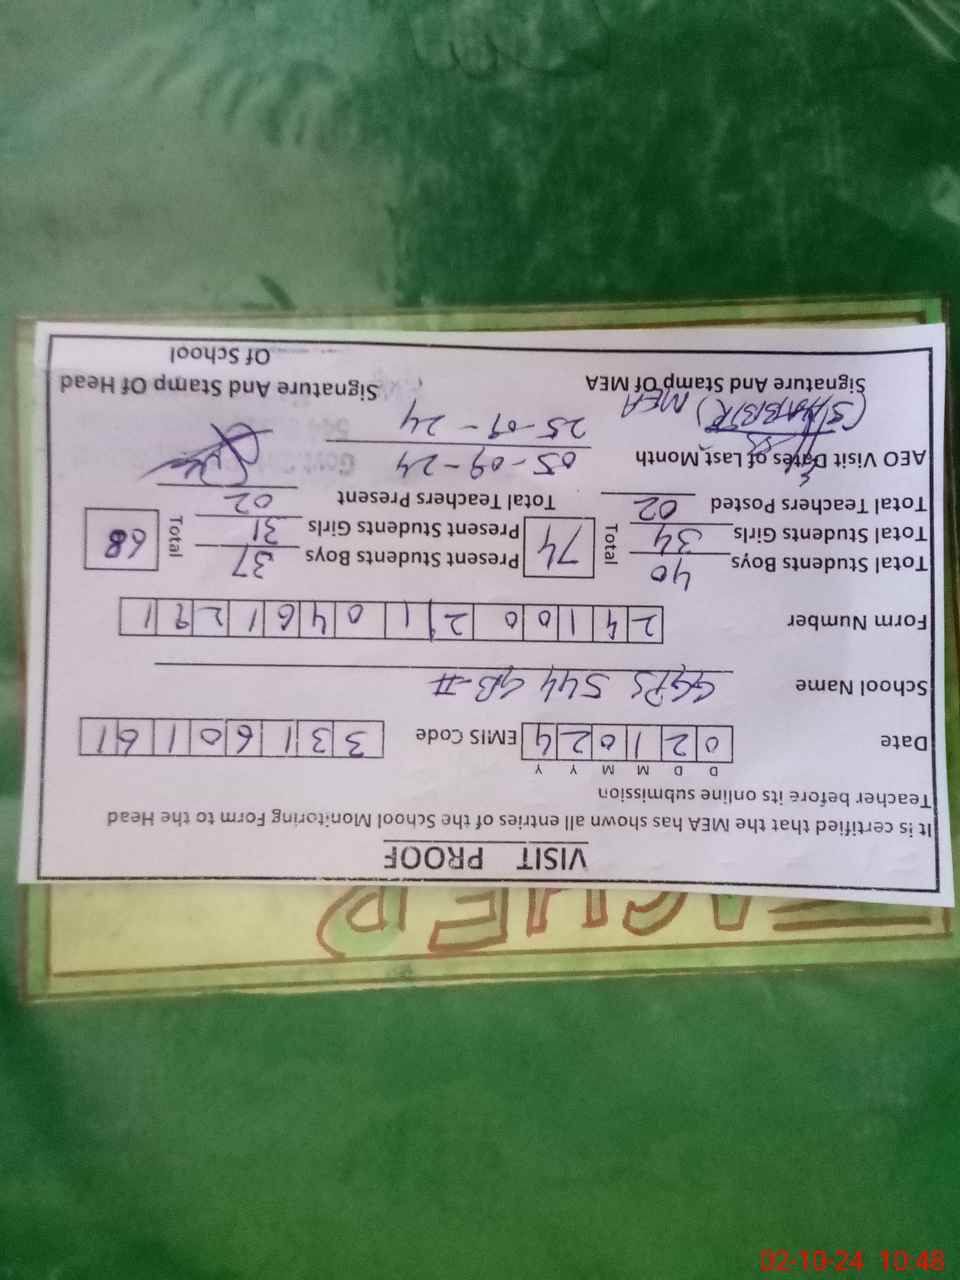 VISIT PROOF
It is certified that the MEA has shown all entries of the School Monitoring Form to the Head
Teacher before its online submission
D D M M Y Y
Date 021024 EMIS Code 33160161
School Name GGPS 544 GB-II
Form Number
Total Students Boys 40 Total 74 Present Students Boys 37 Total 68
Total Students Girls 34 Present Students Girls 31
Total Teachers Posted 02 Total Teachers Present 02
AEO Visit Dates of Last Month 05-09-24
25-09-24
(SHABBIR) MEA
Signature And Stamp Of MEA Signature And Stamp Of Head
Of School
02-10-24 10:48